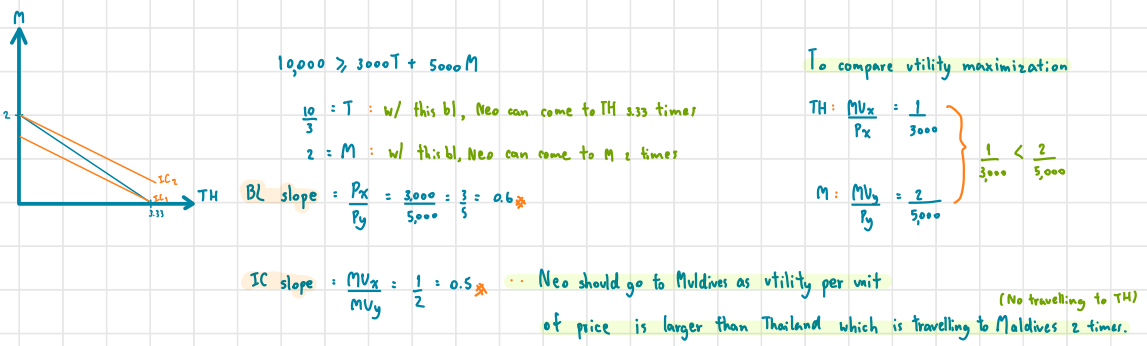 M
2
IC₂
IC₁
3.33
TH
10,000 ≥ 3000T + 5000M
10/3 = T : w/ this bl, Neo can come to TH 3.33 times
2 = M : w/ this bl, Neo can come to M 2 times
BL slope = Px/Py = 3,000/5,000 = 3/5 = 0.6
IC slope = MUx/MUy = 1/2 = 0.5
To compare utility maximization
TH : MUx/Px = 1/3000
1/3,000 < 2/5,000
M : MUy/Py = 2/5,000
∴ Neo should go to Muldives as utility per unit
(No travelling to TH)
of price is larger than Thailand which is travelling to Maldives 2 times.